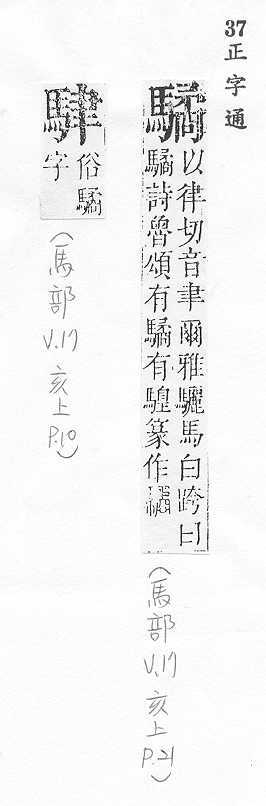 37正字通
驈
以律切音聿爾雅驪馬白跨曰
驈詩魯頌有驈有騜篆作
(馬部 V.17 亥上 P.21)
俗驈
字
(馬部 V.17 亥上 P.10)